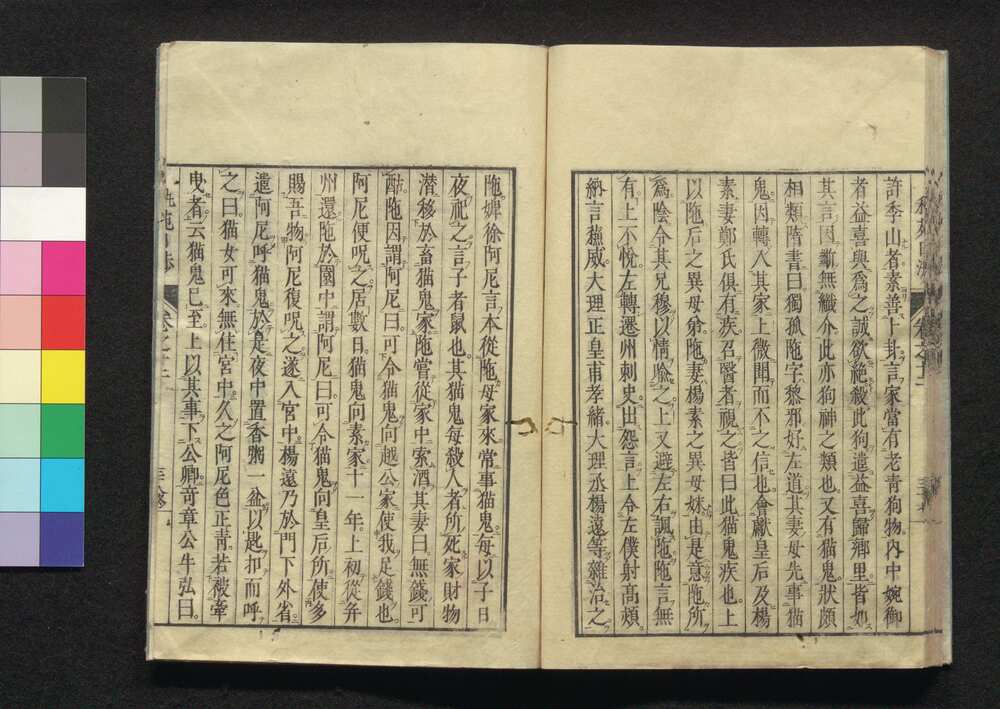 許季山者素善卜卦言家當有老青狗物內中婉御
者益喜與爲之誠欲絕殺此狗遣益喜歸鄉里皆如
其言因斷無纖介此亦狗神之類也又有猫鬼狀頗
相類隋書曰獨孤陁字黎邪好左道其妻母先事猫
鬼因轉入其家上微聞而不之信也會獻皇后及楊
素妻鄭氏俱有疾召醫者視之皆曰此猫鬼疾也上
以陁后之異母弟陁妻楊素之異母妹由是意陁所
爲陰令其兄穆以情喩之上又避左右諷陁陁言無
有上不悅左轉遷州刺史出怨言上令左僕射高熲
納言蘓威大理正皇甫孝緒大理丞楊遠等雜治之
陁婢徐阿尼言本從陁母家來常事猫鬼每以子日
夜祀之言子者鼠也其猫鬼每殺人者所死家財物
潛移於畜猫鬼家陁嘗從家中索酒其妻曰無錢可
酤陁因謂阿尼曰可令猫鬼向越公家使我足錢也
阿尼便呪之居數日猫鬼向素家十一年上初從幷
州還陁於園中謂阿尼曰可令猫鬼向皇后所使多
賜吾物阿尼復呪之遂入宮中楊遠乃於門下外省
遣阿尼呼猫鬼於是夜中置香粥一盆以匙扣而呼
之曰猫女可來無住宮中久之阿尼色正青若被牽
曳者云猫鬼已至上以其事下公卿竒章公牛弘曰
卷之十二